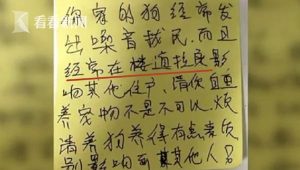 看看新闻
你家的狗经常发
出噪音扰民,而且
经常在楼道拉尿影
响其他住户,请你自重
养宠物不是不可以,烦
请养狗养得有点素质
别影响到其他人!